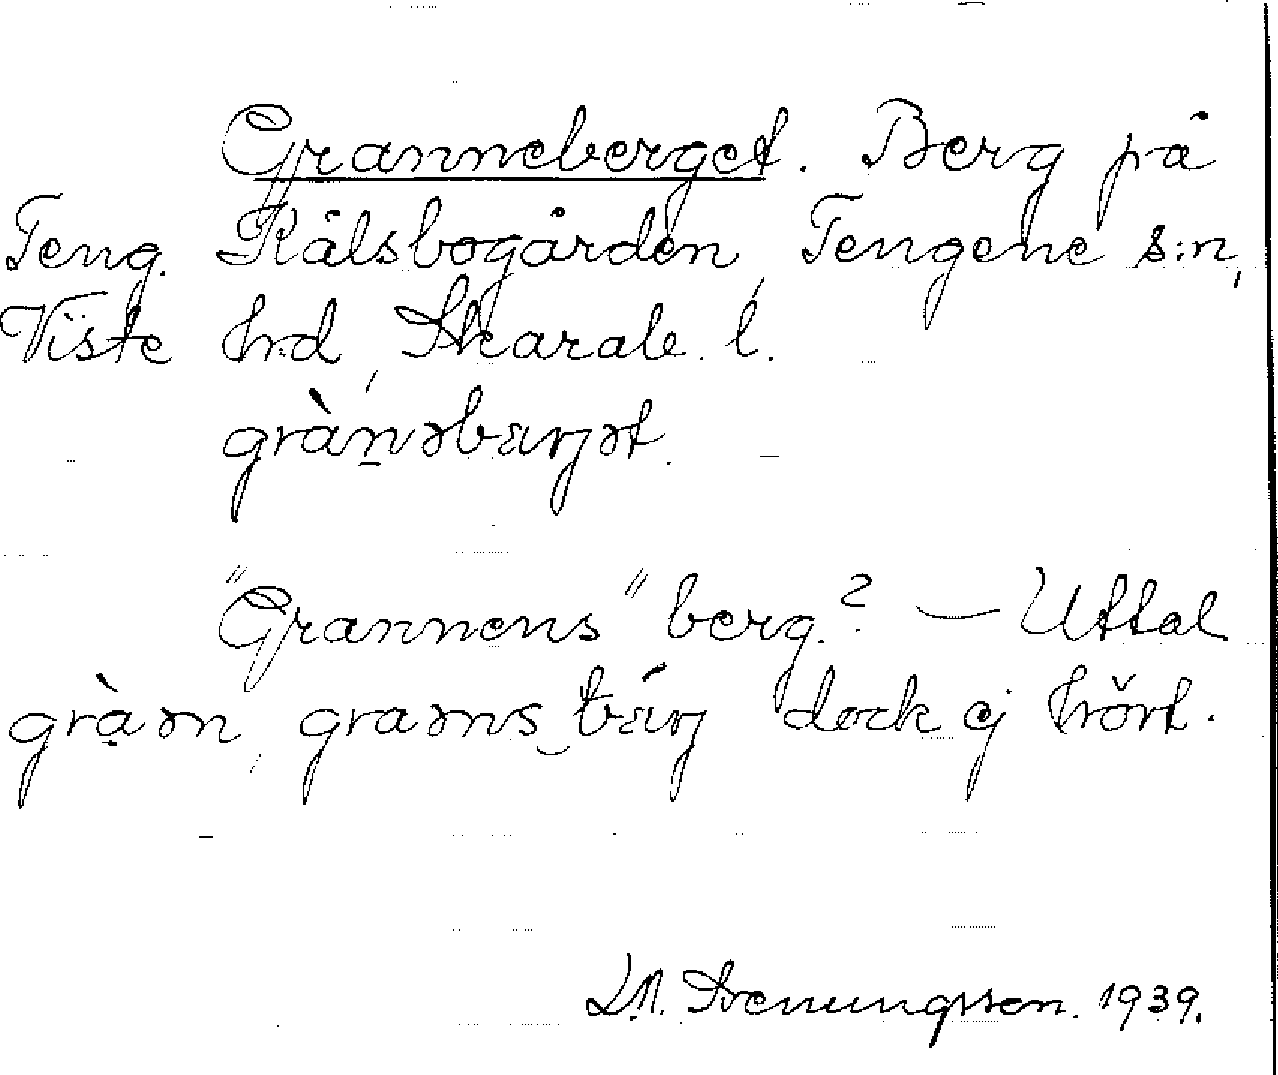 Granneberget. Berg på
Teng. Kålsbogården, Tengene s:n,
Viste hrd, Skarab. l.
gràn̲əbærjət.
"Grannens" berg? — Uttal
grà̤ən, graəns‿bærj dock ej hört.
L.M. Svenungsson. 1939.